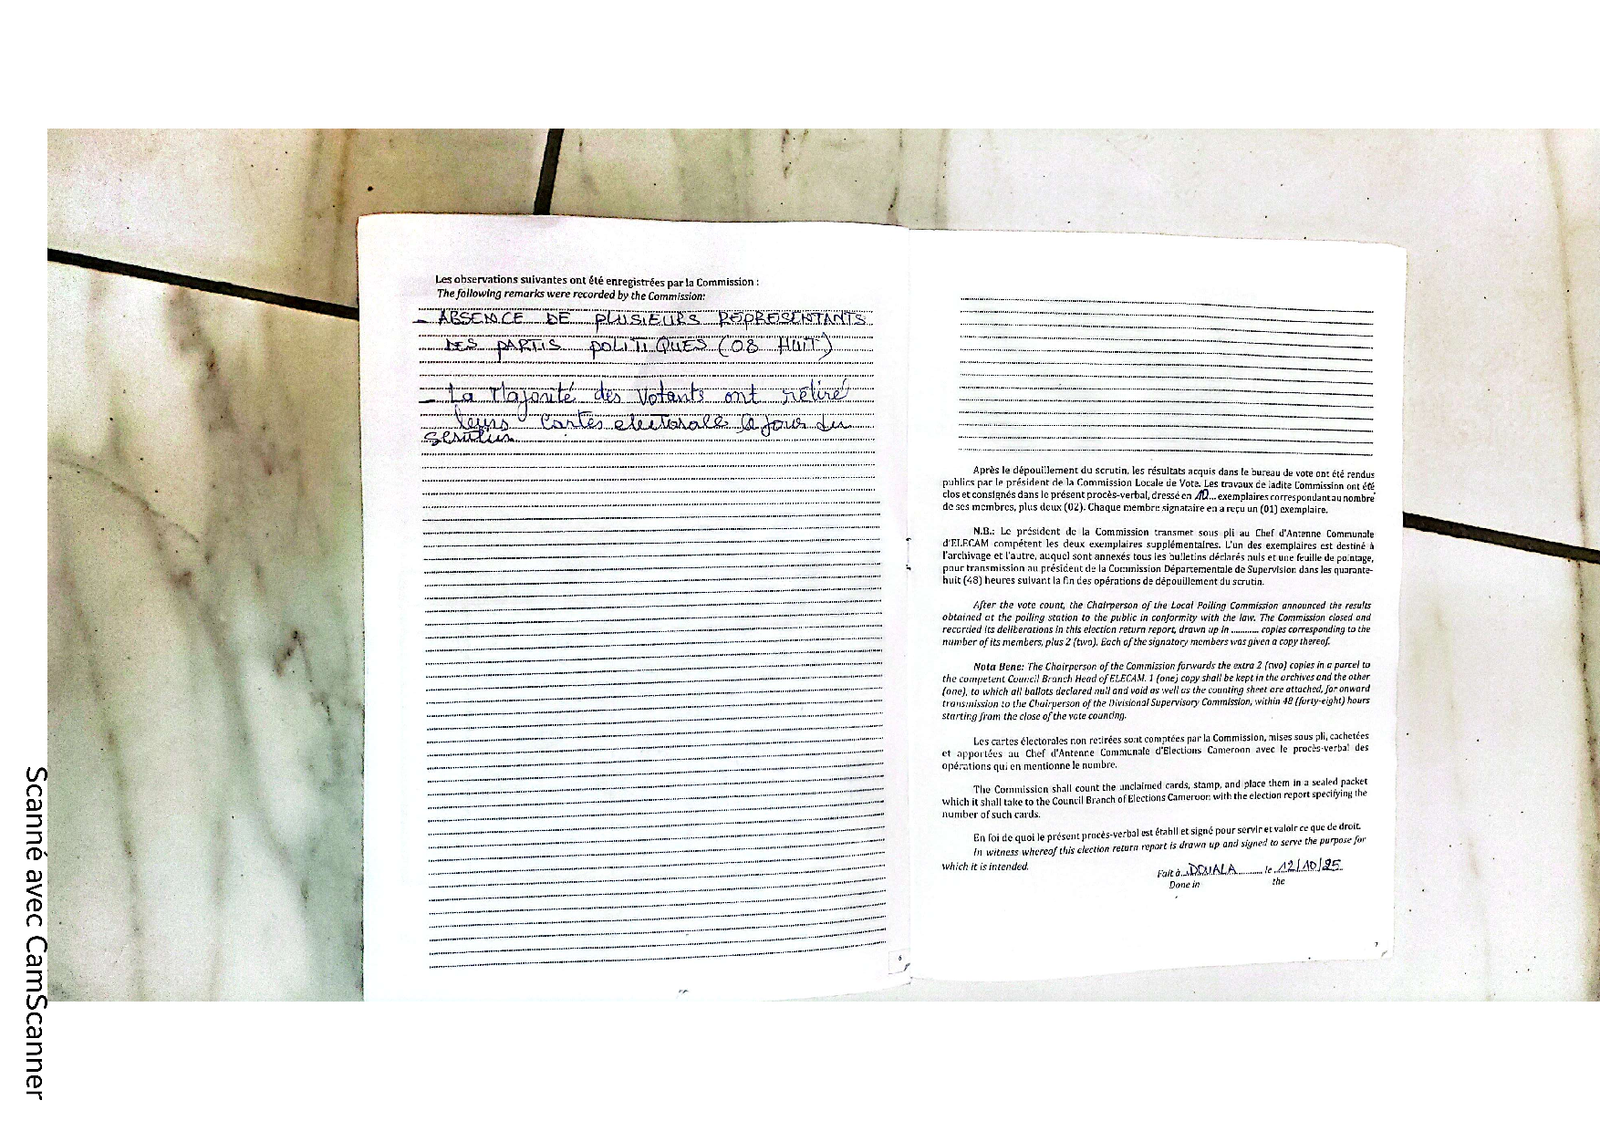 Les observations suivantes ont été enregistrées par la Commission :
The following remarks were recorded by the Commission:
- ABSENCE DE PLUSIEURS REPRESENTANTS
DES PARTIS POLITIQUES (08 HUIT)
- La Majorité des Votants ont retiré
leurs Cartes electorale le jour du
scrutin
6
Après le dépouillement du scrutin, les résultats acquis dans le bureau de vote ont été rendus
publics par le président de la Commission Locale de Vote. Les travaux de ladite Commission ont été
clos et consignés dans le présent procès-verbal, dressé en 10... exemplaires correspondant au nombre
de ses membres, plus deux (02). Chaque membre signataire en a reçu un (01) exemplaire.
N.B.: Le président de la Commission transmet sous pli au Chef d'Antenne Communale
d'ELECAM compétent les deux exemplaires supplémentaires. L'un des exemplaires est destiné à
l'archivage et l'autre, auquel sont annexés tous les bulletins déclarés nuls et une feuille de pointage,
pour transmission au président de la Commission Départementale de Supervision dans les quarante-
huit (48) heures suivant la fin des opérations de dépouillement du scrutin.
After the vote count, the Chairperson of the Local Polling Commission announced the results
obtained at the polling station to the public in conformity with the law. The Commission closed and
recorded its deliberations in this election return report, drawn up in .......... copies corresponding to the
number of its members, plus 2 (two). Each of the signatory members was given a copy thereof.
Nota Bene: The Chairperson of the Commission forwards the extra 2 (two) copies in a parcel to
the competent Council Branch Head of ELECAM. 1 (one) copy shall be kept in the archives and the other
(one), to which all ballots declared null and void as well as the counting sheet are attached, for onward
transmission to the Chairperson of the Divisional Supervisory Commission, within 48 (forty-eight) hours
starting from the close of the vote counting.
Les cartes électorales non retirées sont comptées par la Commission, mises sous pli, cachetées
et apportées au Chef d'Antenne Communale d'Elections Cameroon avec le procès-verbal des
opérations qui en mentionne le nombre.
The Commission shall count the unclaimed cards, stamp, and place them in a sealed packet
which it shall take to the Council Branch of Elections Cameroon with the election report specifying the
number of such cards.
En foi de quoi le présent procès-verbal est établi et signé pour servir et valoir ce que de droit.
In witness whereof this election return report is drawn up and signed to serve the purpose for
which it is intended.
Fait à DOUALA le 12/10/25
Done in the
7
Scanné avec CamScanner